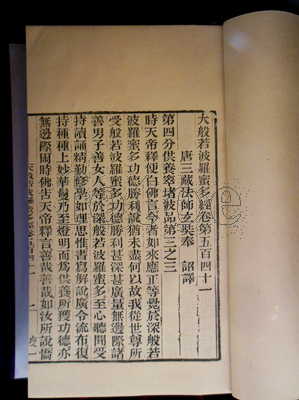 大般若波羅蜜多經卷第五百四十一
唐三藏法師玄奘奉 詔譯
第四分供養窣堵波品第三之三
時天帝釋便白佛言今者如來應正等覺於深般若
波羅蜜多功德勝利說猶未盡何以故我從世尊所
受般若波羅蜜多功德勝利甚深甚廣量無邊際諸
善男子善女人等於深般若波羅蜜多至心聽聞受
持讀誦精勤修學如理思惟書寫解說廣令流布復
持種種上妙華鬘乃至燈明而爲供養所獲功德亦
無邊際爾時佛告天帝釋言善哉善哉如汝所說憍